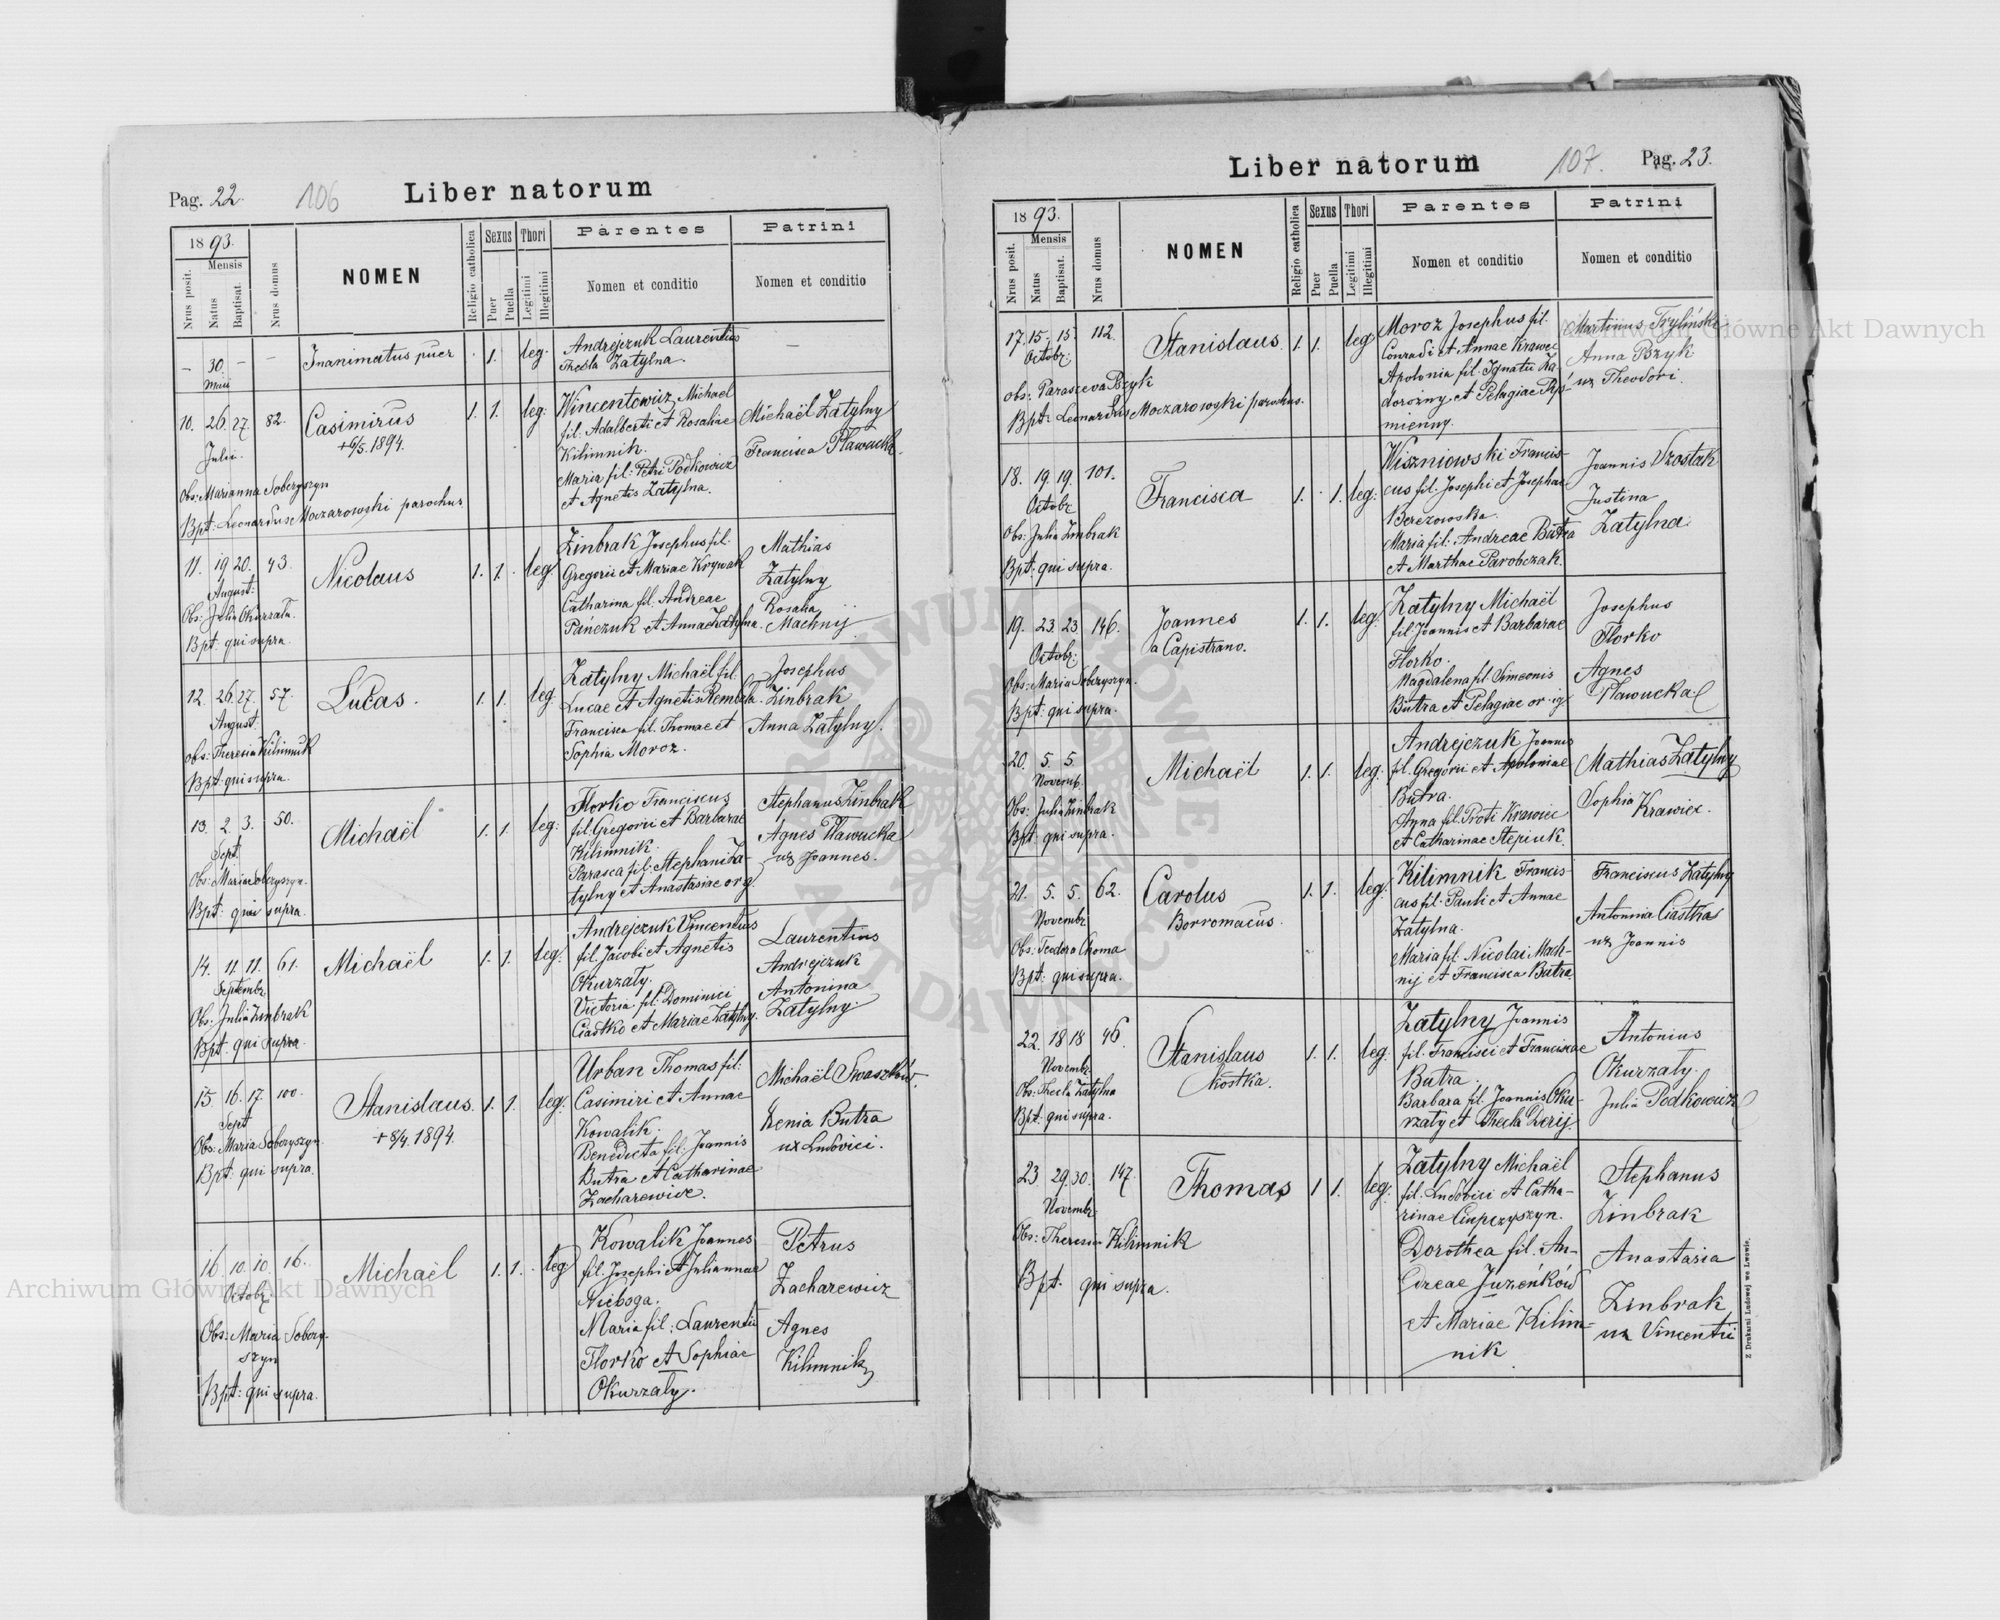 Pag. 22.
106
Liber natorum
1893.
Mensis
Nrus posit.
Natus
Baptisat.
Nrus domus
NOMEN
Religio catholica
Sexus
Puer
Puella
Thori
Legitimi
Illegitimi
Parentes
Nomen et conditio
Patrini
Nomen et conditio
– 30. –
Maii
Inanimatus puer
1. leg.
Andrejczuk Laurentius
Thecla Zatylna.
–
10. 26. 27. 82.
Julii.
Casimirus
+ 6/5. 1894.
1. 1. leg.
Wincentowicz Michael
fil. Adalberti et Rosaliae
Kilimnik.
Maria fil: Petri Podkowicz
et Agnetis Zatylna.
Michaël Zatylny
Francisca Pławucka.
Obs: Marianna Soberyszyn
Bpt: Leonardus Moczarowski parochus
11. 19 20. 43.
August:
Nicolaus
1. 1. leg
Zinbrak Josephus fil.
Gregorii et Mariae Krywak
Catharina fil. Andreae
Pańczuk et Annae Zatylna.
Mathias
Zatylny
Rosalia
Machnij
Obs: Julia Okurzała.
Bpt: qui supra.
12. 26. 27. 57.
August.
Lucas.
1. 1. leg
Zatylny Michaël fil.
Lucae et Agnetis Rembeła.
Francisca fil. Thomae et
Sophia Moroz.
Josephus
Zinbrak
Anna Zatylny.
Obs: Theresia Kilimnik
Bpt: qui supra.
13. 2. 3. 50.
Sept.
Michaël
1. 1. leg.
Florko Franciscus
fil. Gregorii et Barbarae
Kilimnik.
Parasca fil. Stephani Za-
tylny et Anastasiae org.
Stephanus Zinbrak
Agnes Pławucka
ux Joannes.
Obs: Maria Soberyszyn.
Bpt: qui supra.
14. 11. 11. 61.
Septembr
Michaël
1. 1. leg.
Andrejczuk Vincentius
fil. Jacobi et Agnetis
Okurzały.
Victoria fil. Dominici
Ciastko et Mariae Zatylny.
Laurentius
Andrejczuk
Antonina
Zatylny.
Obs: Julia Zinbrak
Bpt. qui supra.
15. 16. 17. 100.
Sept
Stanislaus.
+ 8/4. 1894.
1. 1. leg.
Urban Thomas fil:
Casimiri et Annae
Kowalik.
Benedicta fil: Joannis
Butra et Catharinae
Zacharewicz.
Michaël Swaszków.
Xenia Butra
ux Ludovici.
Obs: Maria Soberyszyn.
Bpt: qui supra.
16. 10. 10. 16.
Octobr
Michaël
1. 1. leg
Kowalik Joannes
fil. Josephi et Juliannae
Nieboga.
Maria fil: Laurentii
Florko et Sophiae
Okurzały.
Petrus
Zacharewicz
Agnes
Kilimnik
Obs: Maria Sobery-
szyn
Bpt: qui supra.
Liber natorum
107.
Pag. 23.
1893.
Mensis
Nrus posit.
Natus
Baptisat.
Nrus domus
NOMEN
Religio catholica
Sexus
Puer
Puella
Thori
Legitimi
Illegitimi
Parentes
Nomen et conditio
Patrini
Nomen et conditio
17. 15. 15. 112.
Octobr.
Stanislaus.
1. 1. leg
Moroz Josephus fil.
Conradi et Annae Krawec
Apolonia fil. Ignatii Za-
dorozny et Pelagiae
mienny.
Martinus Tryliński
Anna Bzyk
ux Theodori.
Obs: Parasceva Bzyk
Bpt: Leonardus Moczarowski parochus.
18. 19. 19. 101.
Octobr
Francisca
1. 1. leg.
Wiszniowski Francis-
cus fil. Josephi et Josephae
Berezowska.
Maria fil: Andreae Butra
et Marthae Parobczak.
Joannis Szostak
Justina
Zatylna.
Obs: Julia Zinbrak
Bpt: qui supra.
19. 23. 23. 146.
Octobr.
Joannes
a Capistrano.
1. 1. leg.
Zatylny Michaël
fil. Joannis et Barbarae
Florko.
Magdalena fil. Simeonis
Butra et Pelagiae or. ig
Josephus
Florko
Agnes
Pławucka
Obs: Maria Soberyszyn.
Bpt: qui supra.
20. 5. 5
Novemb.
Michaël
1. 1. leg.
Andrejczuk Joannes
fil. Gregorii et Apoloniae
Butra.
Anna fil. Proti Krawiec
et Catharinae Stepiuk.
Mathias Zatylny
Sophia Krawiec.
Obs: Julia Zinbrak
Bpt: qui supra.
21. 5. 5. 62.
Novembr
Carolus
Borromaeus.
1. 1. leg.
Kilimnik Francis-
cus fil. Pauli et Annae
Zatylna.
Maria fil. Nicolai Mach-
nij et Francisca Butra
Franciscus Zatylny
Antonina Ciastka
ux Joannis
Obs: Teodora Choma
Bpt: qui supra.
22. 18 18 46.
Novembr.
Stanislaus
Kostka.
1. 1. leg.
Zatylny Joannis
fil. Francisci et Franciscae
Butra.
Barbara fil. Joannis Oku-
rzały et Thecla Derij.
Antonius
Okurzały.
Julia Podkowicz
Obs: Thecla Zatylna
Bpt: qui supra.
23 29. 30. 147.
Novembr
Thomas
1 1. leg.
Zatylny Michaël
fil. Ludovici et Catha-
rinae Ciupczyszyn.
Dorothea fil. An-
dreae Juzeńków
et Mariae Kilim-
nik.
Stephanus
Zinbrak
Anastasia
Zinbrak
ux Vincentii
Obs: Theresia Kilimnik
Bpt. qui supra.
Z Drukarni Ludowej we Lwowie.
Archiwum Główne Akt Dawnych
Główne Akt Dawnych
ARCHIWUM GŁÓWNE AKT DAWNYCH